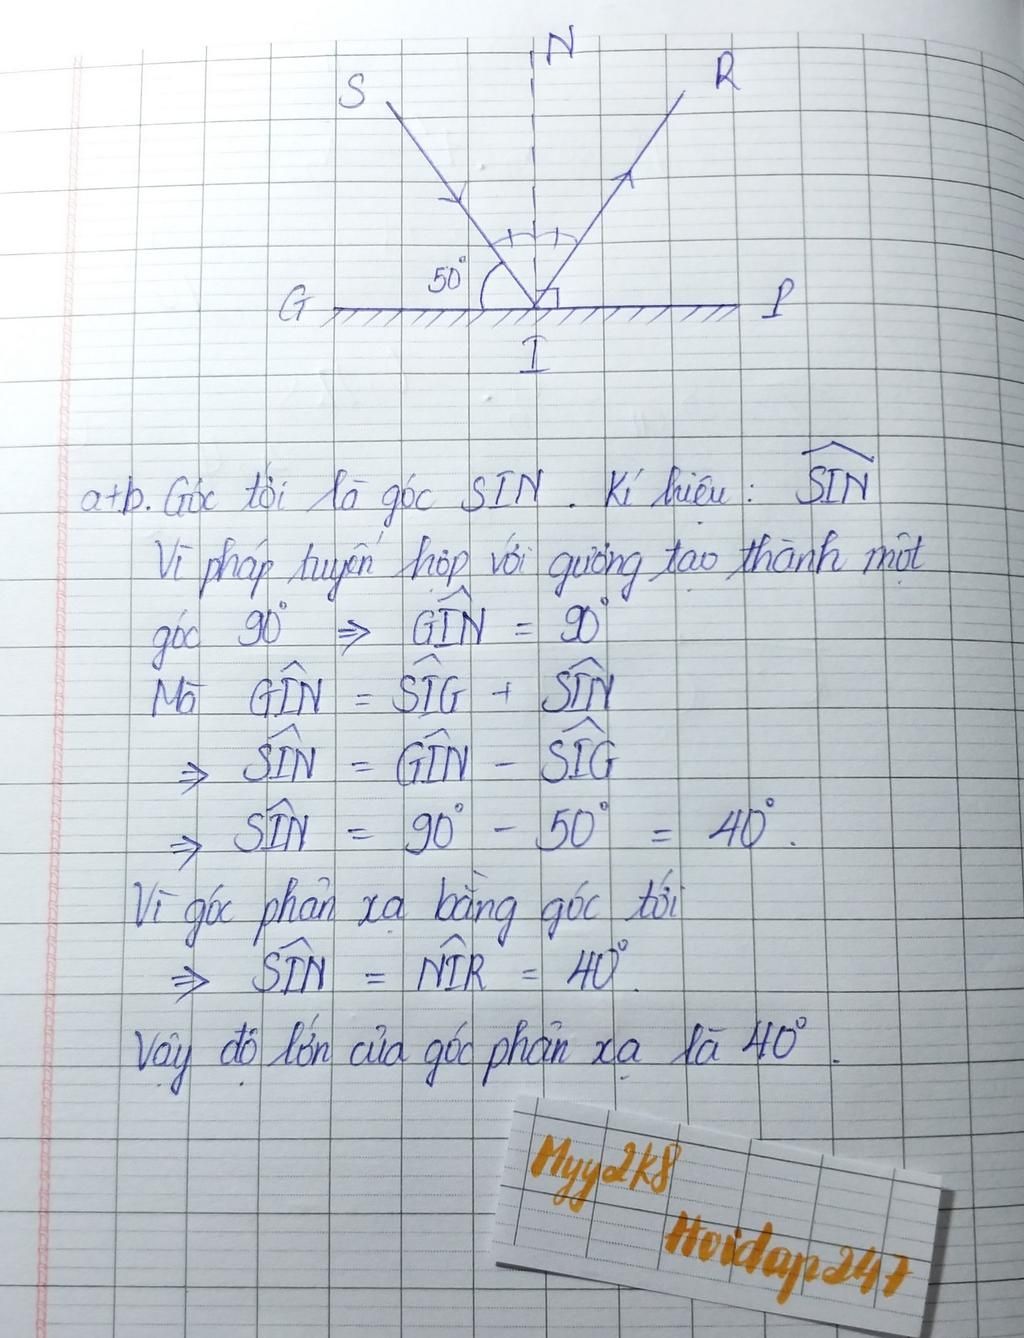 N
S
R
50°
G
P
I
a+b. Góc tới là góc SIN. Kí hiệu: SIN
Vì pháp tuyến hợp với gương tạo thành một
góc 90° => GIN = 90°
Mà GIN = SIG + SIN
=> SIN = GIN - SIG
=> SIN = 90° - 50° = 40°.
Vì góc phản xạ bằng góc tới
=> SIN = NIR = 40°.
Vậy độ lớn của góc phản xạ là 40°.
Myy2k8
Hoidap247